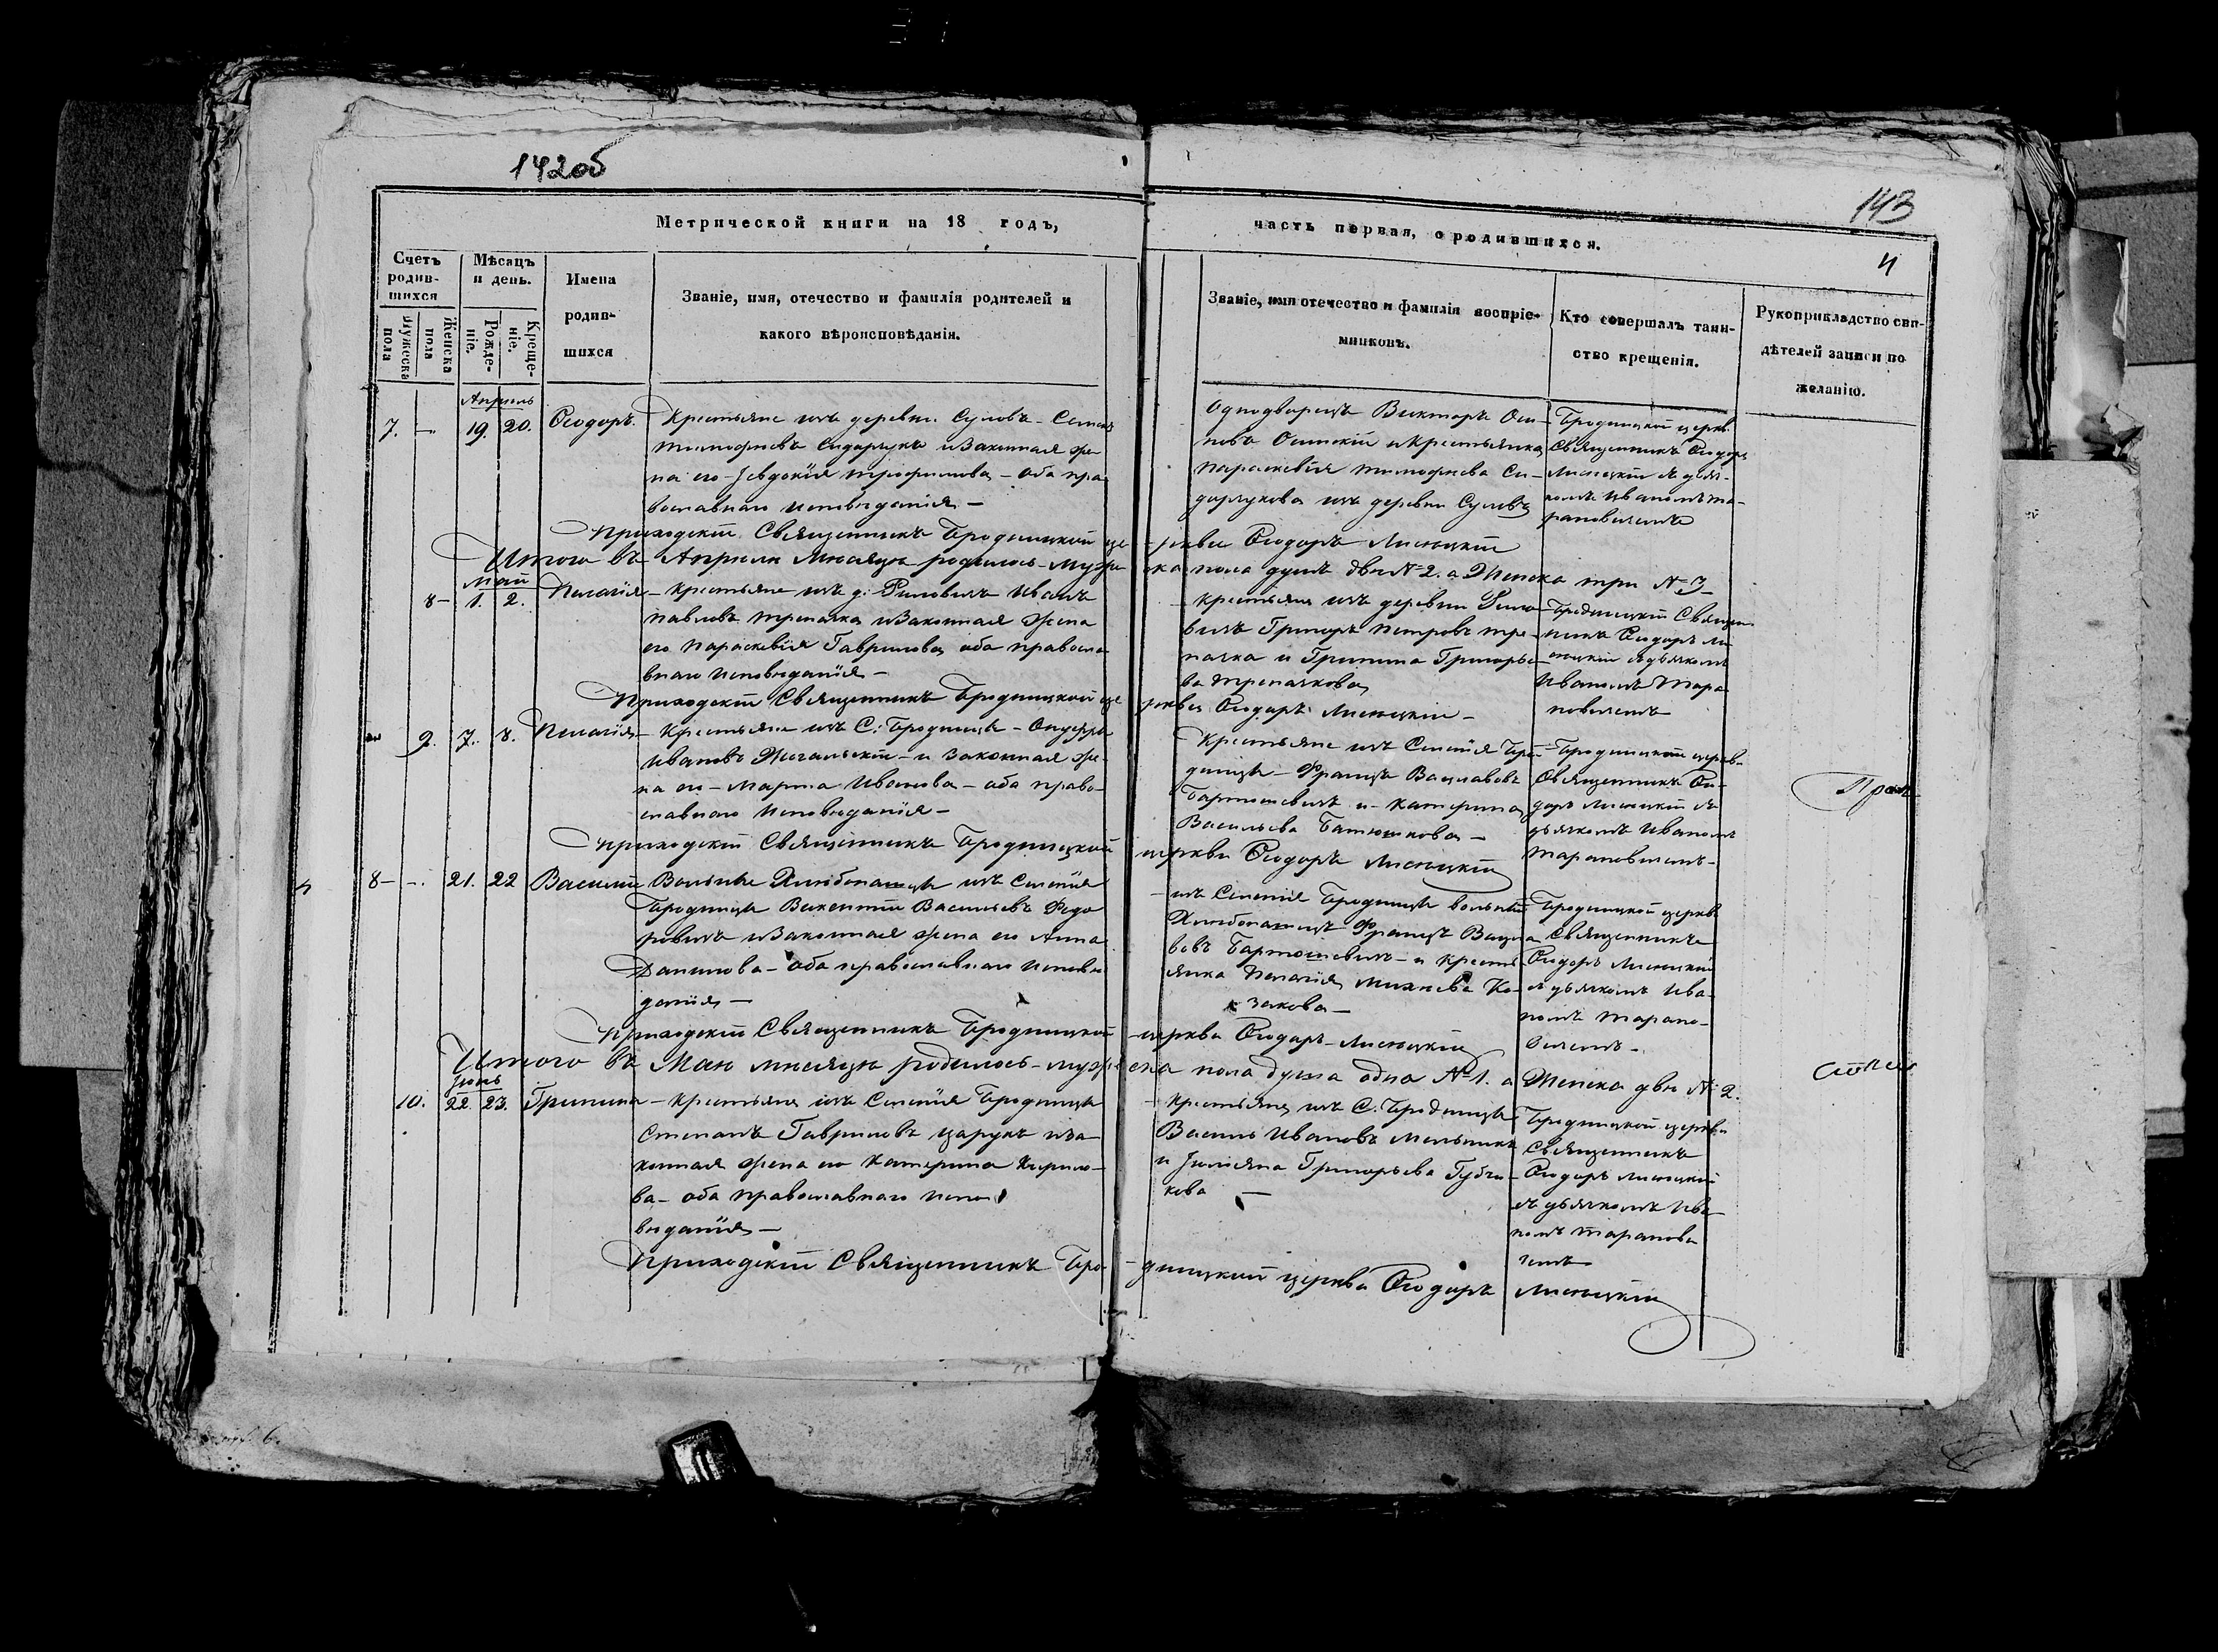 142об
143
Метрической книги на 18 годъ,
часть первая, о родившихся.
4
Счетъ родив-шихся
Мѣсяцъ и день.
Имена родив-шихся
Званіе, имя, отечество и фамилія родителей и
какого вѣроисповѣданія.
Мужеска пола
Женска пола
Рожде-ніе.
Креще-ніе.
Званіе, имя отечество и фамилія воспріе-
мниковъ.
Кто совершалъ таин-
ство крещенія.
Рукоприкладство сви-
дѣтелей записи по
желанію.
Апрѣль
7. — 19. 20. Ѳеодоръ. Крестьяне изъ деревни Суловъ - Семенъ
Тимофѣевъ Сидорукъ и Законная же-
на его Іевдокія Трофимова - оба пра-
вославнаго исповѣданія -
Однодворецъ Викторъ Оси-
повъ Осинскій и Крестьянка
Параскевія Тимофѣева Си-
дорукова изъ деревни Суловъ
Бродницкой церкви
Священникъ Ѳеодоръ
Лисецкій съ дьяч-
комъ Иваномъ Та-
рановичемъ
Приходскій Священникъ Бродницкой це-ркви Ѳеодоръ Лисецкій
Итого въ Апрѣлѣ Мѣсяцѣ родилось - муже-ска пола душъ двѣ № 2. а Женска три № 3
Май
8 - 1. 2. Пелагія - Крестьяне изъ д. Риловичъ Иванъ
Павловъ Трепачка и Законная жена
его Параскевія Гаврилова оба правосла
внаго исповѣданія -
Крестьяне изъ деревни Рило-
вичъ Григоръ Петровъ Тре-
пачка и Грипина Григорье-
ва Трепачкова
Бродницкій Священ-
никъ Ѳеодоръ Ли-
сецкій съ дьячкомъ
Иваномъ Тара
новичемъ
Приходскій Священникъ Бродницкой це-ркви Ѳеодоръ Лисецкій -
9. 7. 8. Пелагія - Крестьяне изъ С. Бродница - Онуфрій
Ивановъ Жигальскій - и Законная же-
на его - Марта Иванова - оба право-
славнаго исповѣданія -
Крестьяне изъ Селенія Бро-
дница - Францъ Вацлавовъ
Бартошевичъ и Катерина
Васильева Батюшкова -
Бродницкой церкви
Священникъ Ѳео-
доръ Лисецкій съ
дьячкомъ Иваномъ
Тарановичемъ -
Приходскій Священникъ Бродницкой церкви Ѳеодоръ Лисецкій
8 - -. 21. 22 Василій Вольные Хлѣбопашцы изъ Селенія
Бродница Викентій Васильевъ Федо
ровичъ и Законная жена его Анна
Данилова - оба православнаго исповѣ
данія -
изъ Селенія Бродница вольный
Хлѣбопашецъ Францъ Вацла
вовъ Бартошевичъ - и Кресть
янка Пелагія Михнева Ко-
закова -
Бродницкой церкви
Священникъ
Ѳеодоръ Лисецкій
съ дьячкомъ Ива-
номъ Тарано-
вичемъ -
Приходскій Священникъ Бродницкой - церкви Ѳеодоръ - Лисецкій
Итого въ Маѣ мѣсяцѣ родилось - муже ска пола душа одна № 1. а Женска двѣ № 2.
Іюнь
10. 22. 23. Грипина - Крестьяне изъ Селенія Бродница
Степанъ Гавриловъ Царукъ и за-
конная жена его Катерина Кирило-
ва - оба православнаго испо
вѣданія -
Крестьяне изъ С. Бродница
Василь Ивановъ Мельникъ
и Іуліяна Григорьева Губчи-
кова -
Бродницкой церкви
Священникъ
Ѳеодоръ Лисецкій
съ дьячкомъ Ива-
номъ Таранови
чемъ
Приходскій Священникъ Бро-дницкой церкви Ѳеодоръ Лисецкій